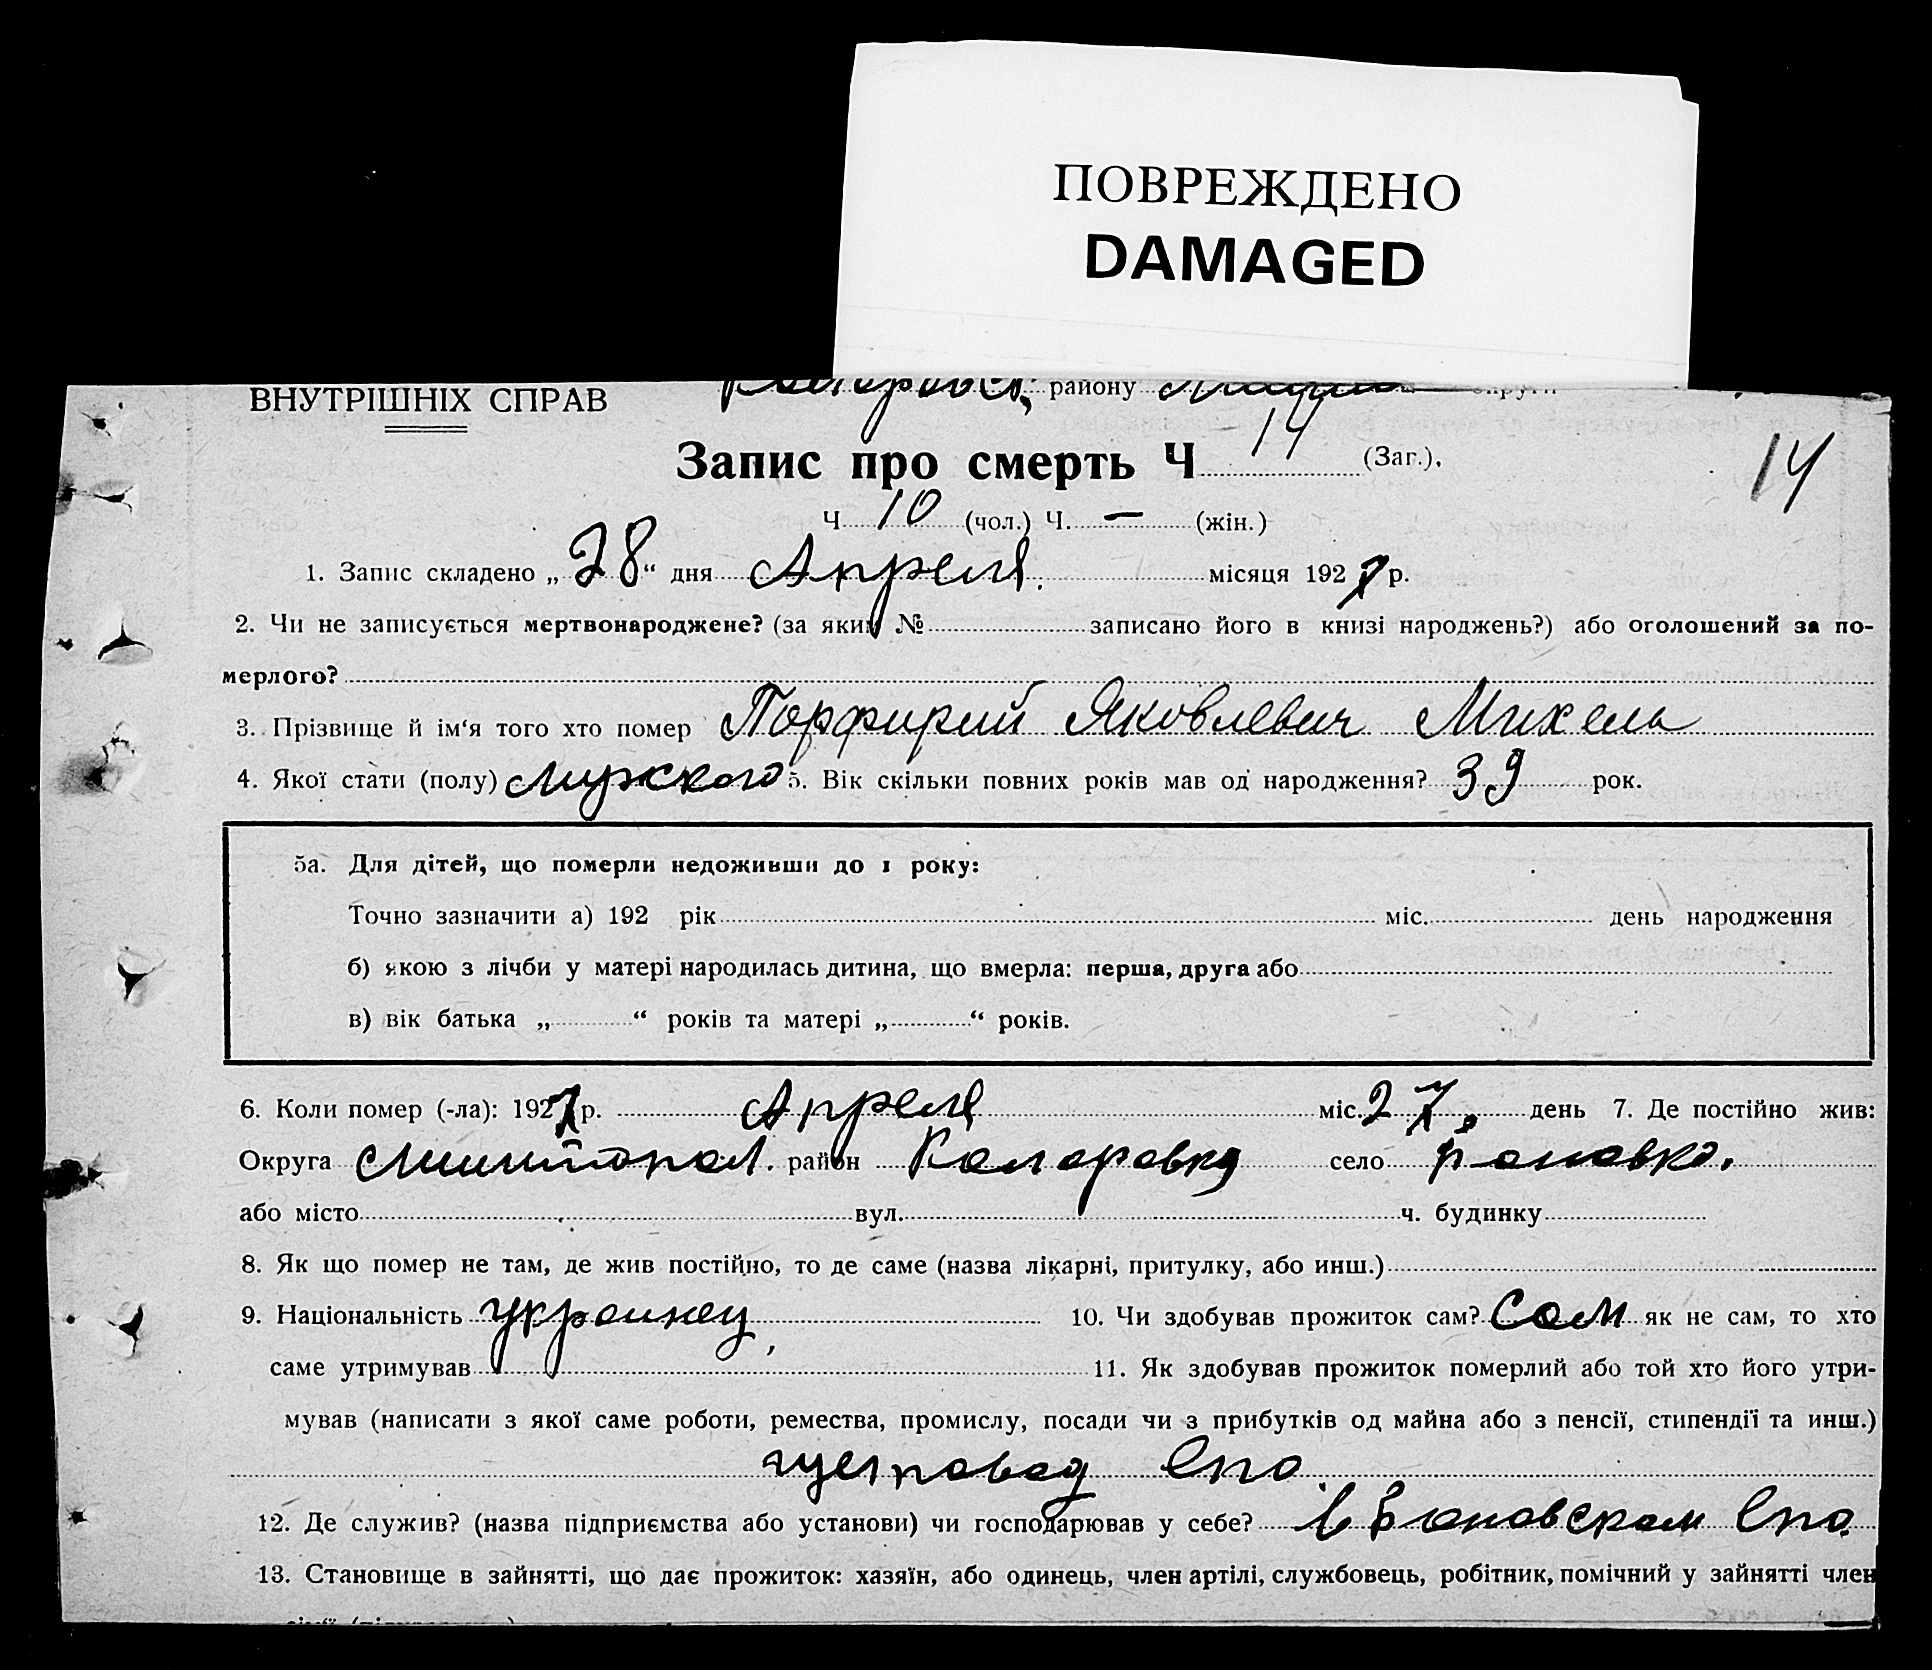 ПОВРЕЖДЕНО
DAMAGED
ВНУТРІШНІХ СПРАВ району
Запис про смерть Ч 14 (Заг.). 14
Ч 10 (чол.) Ч. — (жін.)
1. Запис складено „ 28 “ дня Апреля. місяця 1927 р.
2. Чи не записується мертвонароджене? (за яким № записано його в книзі народжень?) або оголошений за по-
мерлого?
3. Прізвище й ім‘я того хто помер Порфирий Яковлевич Михель
4. Якої стати (полу) мужского 5. Вік скільки повних років мав од народження? 39 рок.
5а. Для дітей, що померли недоживши до 1 року:
Точно зазначити а) 192 рік міс. день народження
б) якою з лічби у матері народилась дитина, що вмерла: перша, друга або
в) вік батька „ “ років та матері „ “ років.
6. Коли помер (-ла): 1927 р. Апреля міс. 27. день 7. Де постійно жив:
Округа район Коларовка село
або місто вул. ч. будинку
8. Як що помер не там, де жив постійно, то де саме (назва лікарні, притулку, або инш.)
9. Національність украинец, 10. Чи здобував прожиток сам? Сам як не сам, то хто
саме утримував 11. Як здобував прожиток померлий або той хто його утри-
мував (написати з якої саме роботи, ремества, промислу, посади чи з прибутків од майна або з пенсії, стипендії та инш.)
Спо
12. Де служив? (назва підприємства або установи) чи господарював у себе? в Спо.
13. Становище в зайнятті, що дає прожиток: хазяїн, або одинець, член артілі, службовець, робітник, помічний у зайнятті член